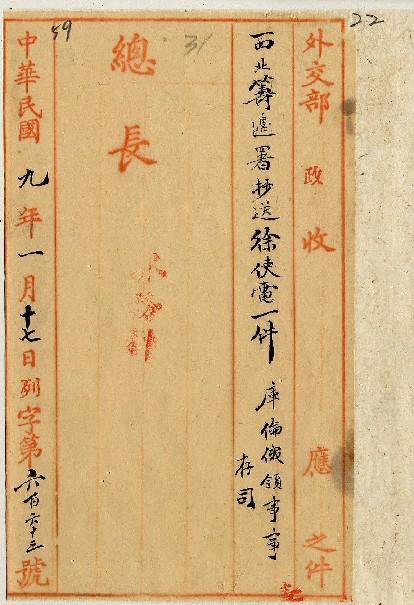 22
外交部 政 收 應 之件
西北籌邊署抄送徐使電一件 庫倫俄領事事
存司
31
總長
59
中華民國九年一月十七日列字第六百六十三號